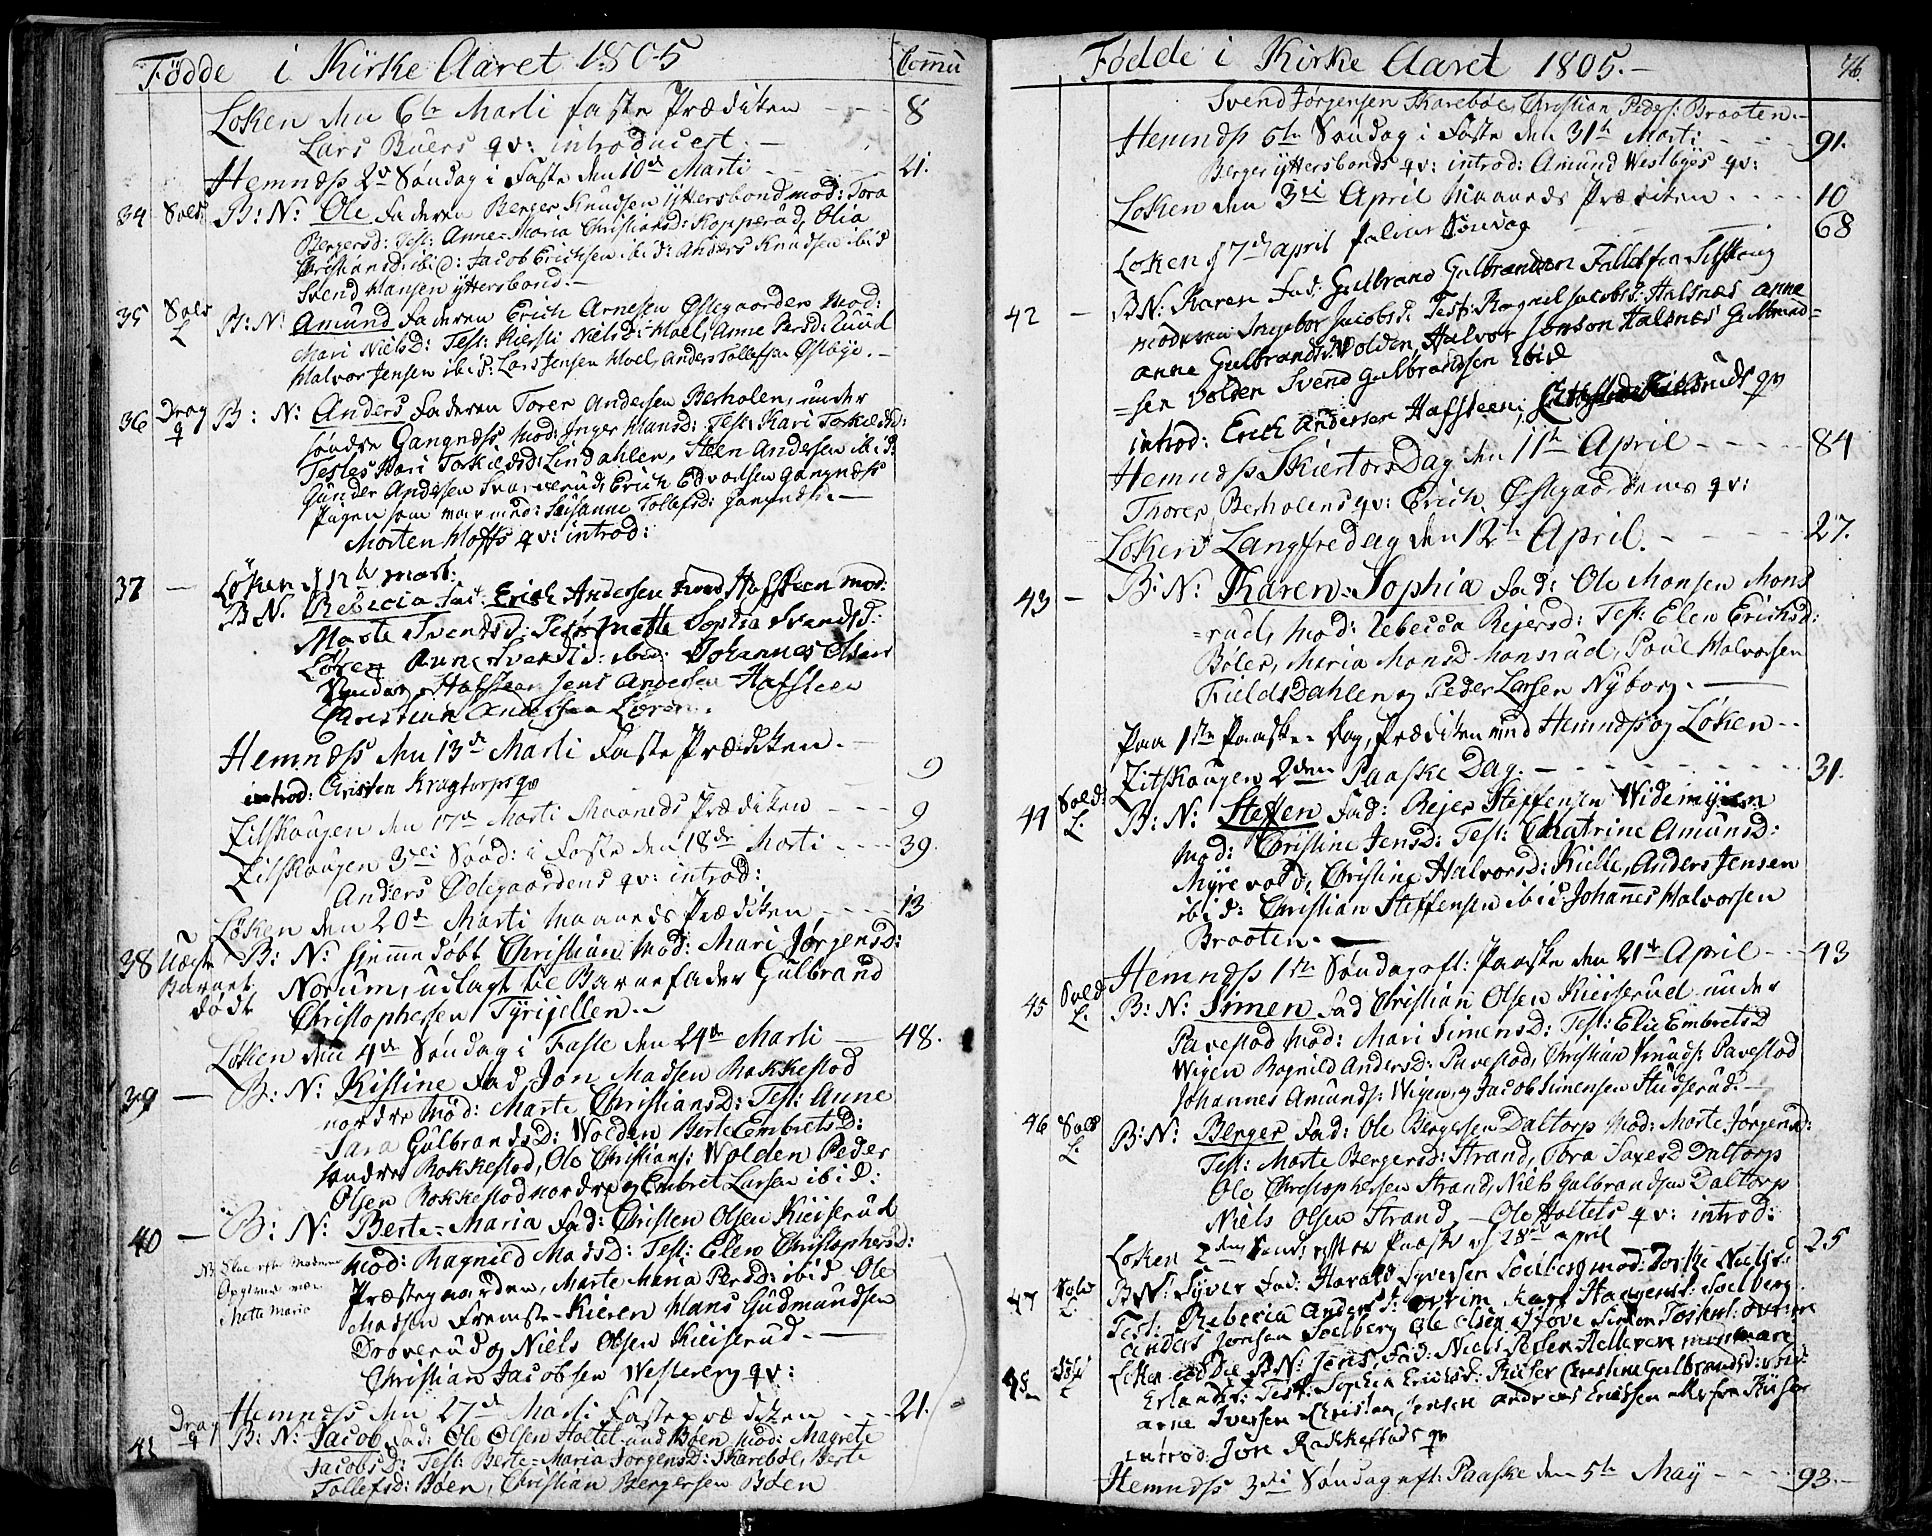 Fødde i Kirke Aaret 1805
Comu
Løken den 6te Marti Faste Prædiken - - - 8
Lars Buers qv: introducert. -
Hemnæss 2d Søndag i Faste den 10de Marti - - - 21.
34 Sold B: N: Ole Faderen Berger Knudsen Yttersbond mod: Tora
Bergersd: Test: Anne-Maria Christiansd: Kopperud, Olia
Christiansd: ibid: Jacob Erichsen ibid: Anders Knudsen ibid
Svend Hansen Yttersbond. -
35 Sold L B: N: Amund Faderen Erich Arnesen Østegaarden Mod:
Mari Nielsd: Test: Kiersti Nielsd: Moel, Anne Persd: Ruud
Halvor Jensen ibid: Lars Jensen Moel, Anders Tollefsen Østbye. -
36 Drag q B: N: Anders Faderen Torer Andersen Berholen, under
søndre Gangnæss Mod: Inger Hansd: Test: Kari Torkildsd:
Testes Mari Torkildsd: Lindahlen, Steen Andersen ibid:
Gunder Andersen Svarverud, Erich Edvardsen Gangnæss
Pigen som var med: Susanne Tollefsd: Gangnæss. -
Morten Hoffs qv: introd:
Løken d 12te mart:
37 - B N. Rebecia Fad: Erich Andersen Hafsteen mod:
Marte Svendsd: Test: Mette Sophia Svendsd:
Løren Anne Svendsd: ibid: Johannes Olsen
Hafsteen Jens Andersen Hafsteen
Christian Andersen Løren.
Hemnæss den 13de Marti Faste Prædiken. - 9
introd: Christen Kragtorps qv
Zitskougen den 17de Marti Maaneds Prædiken - - - 9
Zitskougen 3die Sønd: i Faste den 18de Marti - - - 39.
Anders Ødegaardens qv: introd:
Løken den 20de Marti Maaneds Prædiken - - - 13
38 Uægte Barnet dødt B: N: hjemmedøbt Christian Mod: Mari Jørgensd:
Norum, udlagt til Barnefader Gulbrand
Christophersen Tyrijellen. -
Løken den 4de Søndag i Faste den 24de Marti - 48.
39 - B: N: Kistine Fad Jon Madsen Rakkestad
nordre Mod: Marte Christiansd: Test: Anne
Sara Gulbrandsd: Wolden Berte Embretsd:
søndre Rokkestad, Ole Christians: Wolden Peder
Olsen Rokkestad nordre og Embret Larsen ibid:
40 - B: N: Berte-Maria Fad: Christen Olsen Kieiserud
NB efter Moderens Opgivende være Mette Maria
Mod: Ragnild Madsd: Test: Elen Christophersd:
Præstegaarden, Marte Maria Persd: ibid Ole
Madsen Fremste-Kieren Hans Gudmundsen
Droverud og Niels Olsen Kieiserud. -
Christian Jacobsen Westereng qv:
Hemnæss den 27de Marti Fasteprædiken - - - 21.
41 Drag q B: N: Jacob Fad: Ole Olsen Holtet und Bøen Mod: Magrete
Jacobsd: Test: Berte-Maria Jørgensd: Skarebøl, Berte
Tollefsd: Bøen, Christian Bergersen Bøen
Fødde i Kirke Aaret 1805. - 76.
Svend Jørgensen Skarebøl, Christian Peders: Braaten. -
Hemnæss 5te Søndag i Faste den 31te Marti - - - 91.
Berger Yttersbonds qv: introd: Amund Westbyes qv:
Løken den 3die April Maaneds Prædiken - - - 10
Løken d 7de april Palme Søndag - - - 68
42 - B N: Karen Fad: Gulbrand Gulbrandsen Sitskoug
moderen Ingebor Jacobsd: Test: Ragnil Jacobsd: Halsnæs Anne
Anne Gulbrandsd: Wolden, Halvor Jonson Halsnæs Gulbrand=
=sen Volden Svend Gulbrandsen ibid
introd: Erich Andersen Hafsteen, qv
Hemnæss Skiertors Dag den 11te April - - - 84
Thorer Berholens qv: Erich Østegaardens qv:
Løken Langfredag den 12te April. - - - 27.
43 - B: N: Karen-Sophia Fad: Ole Monsen Mons
=rud, Mod: Rebecca Rejersd: Test: Elen Erichsd:
Bøler, Maria Monsd Monsrud, Poul Halvorsen
Fieldsdahlen og Peder Larsen Nyborg. -
Paa 1ste Paaske-Dag, Prædiken ved Hemnæss og Løken - -
Zitskougen 2den Paaske Dag. - - - 31.
44 Sold: L. B: N: Steffen Fad: Rejer Steffensen Widemyren
Mod: Christine Jensd: Test: Chatrine Amundsd:
Myrevold, Christine Halvorsd: Kielle, Anders Jensen
ibid: Christian Steffensen ibid Johannes Halvorsen
Braaten. -
Hemnæss 1ste Søndag eft: Paaske den 21de April - - 43
45 Sold L. B: N: Simen Fad Christian Olsen Kieiserud under
Pavestad Mod: Mari Simensd: Test: Elie Embretsd
Wigen Ragnild Andersd: Pavestad, Christian Knuds: Pavestad
Johannes Amunds: Wigen, og Jacob Simensen Studserud. -
46 Sold L. B: N: Berger Fad: Ole Bergersen Daltorp Mod: Marte Jørgensd:
Test: Marte Bergersd: Strand, Tora Saxesd Daltorp
Ole Christophersen Strand, Niels Gulbrandsen Daltorp
Niels Olsen Strand, - Ole Holtets qv: introd:
Løken 2den Sønd: efter Paaske d 28de april 25
47 Sold L. B N: Syver Fad: Harald Syversen Soelberg mod: Dorthe Nielsd:
Test: Rebecia Andersd: Kari Haagensd: Soelberg
Anders Jonsen Soelberg Ole Olsen Simon
48 Sold L Løken eod Die B N: Jens, Fad: Niels Pedersen mod Mari
Erlandsd: Test: Sophia Erichsd: Riiser Christine Gulbrandsd:
Arne Iversen Christen Jensen Andreas Erichsen
introd: Jon Rakkestads qv
Hemnæss 3die Søndag eft: Paaske den 5te May - - - 93. -